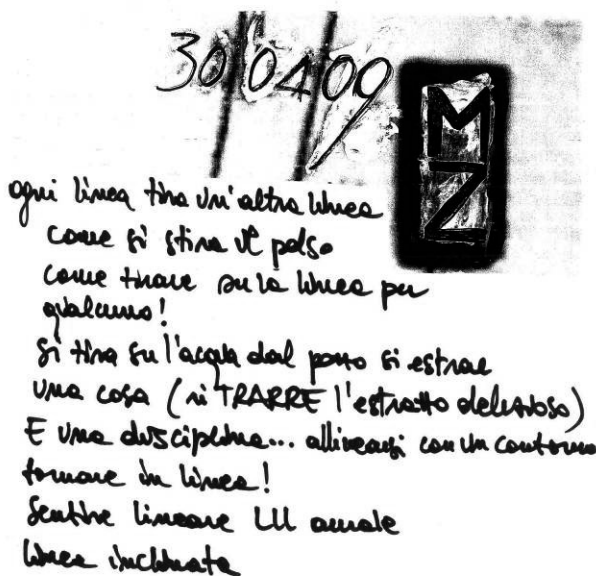 30/01/09
M
Z
ogni linea tira un'altra linea
come si stira il polso
come tirare su la linea per
qualcuno!
si tira su l'acqua dal pozzo si estrae
una cosa (ri TRARRE l'estratto
E una disciplina... allinearsi con un contorno
tornare in linea!
Sentire lineare
linea inclinata